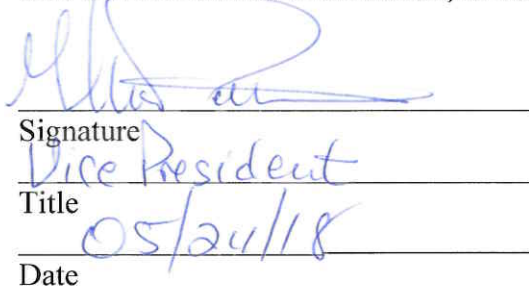 Signature
Vice President
Title
05/24/18
Date